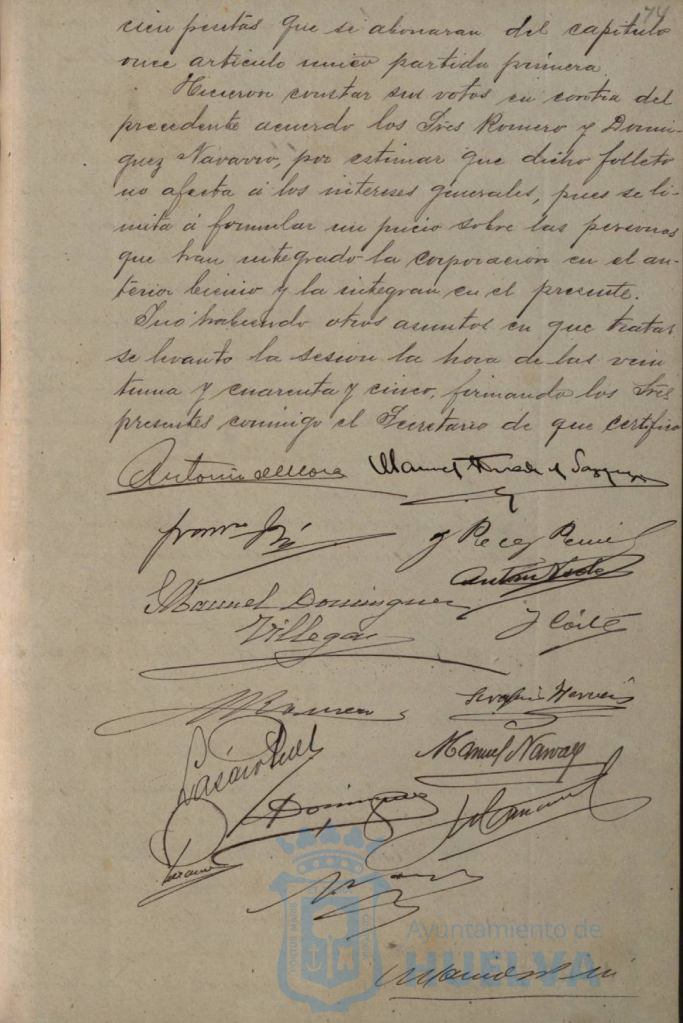 174
cien pesetas que se abonaran del capitulo
once articulo unico partida primera.
Hicieron constar sus votos en contra del
precedente acuerdo los Sres Romero y Domin-
guez Navarro, por estimar que dicho folleto
no afecta á los intereses generales, pues se li-
mita á formular un juicio sobre las personas
que han integrado la corporacion en el an-
terior bienio y la integran en el presente.
Y no habiendo otros asuntos en que tratar
se levanto la sesion la hora de las vein
tiuna y cuarenta y cinco, firmando los Sres
presentes conmigo el Secretario de que certifico
Antonio de Mora Manuel
Manuel Dominguez
Villegas
Romero
Manuel Navarro
Dominguez
Ayuntamiento de
HUELVA